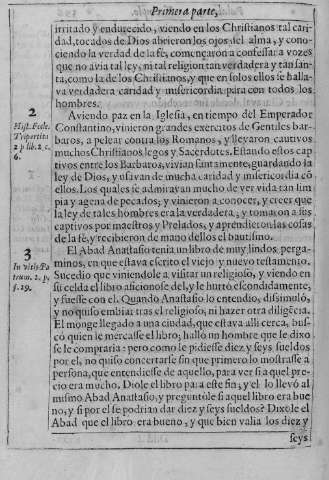 Primera parte,
irritado y endurecido, viendo en los Christianos tal cari
dad, tocados de Dios abrieron los ojos del alma, y cono
ciendo la verdad de la fè, començaron a confessar a vozes
que no avia tal ley, ni tal religion tan verdadera y tan san
ta, como la de los Christianos, y que en solos ellos se halla-
va verdadera caridad y misericordia para con todos los
hombres.
2
Hist. Eccle.
Tripartita
2 p lib. 2. c.
6.
Aviendo paz en la Iglesia, en tiempo del Emperador
Constantino, vinieron grandes exercitos de Gentiles bar-
baros, a pelear contra los Romanos, y llevaron cautivos
muchos Christianos legos y Sacerdotes. Estando estos cap
tivos entre los Barbaros, vivian santamente, guardando la
ley de Dios, y usavan de mucha caridad y misericordia cõ
ellos. Los quales se admirayan mucho de ver vida tan lim
pia y agena de pecados, y vinieron a conocer, y creer que
la ley de tales hombres era la verdadera, y tomaron a sus
captivos por maestros y Prelados, y aprendieron las cosas
de la fè, y recibieron de mano dellos el bautismo.
3
In vitis Pa
trum. 2. p.
§. 29.
El Abad Anastasio tenia un libro de muy lindos perga-
minos, en que estava escrito el viejo y nuevo testamento.
Sucedio que viniendole a visitar un religioso, y viendo en
su celda el libro aficionose del, y le hurtò escondidamente,
y fuesse con el. Quando Anastasio lo entendio, dissimulò,
y no quiso embiar tras el religioso, ni hazer otra diligẽcia.
El monge llegado a una ciudad, que estava alli cerca, bus-
cò quien le mercasse el libro, hallò un hombre que le dixo
se le compraria: pero como le pidiesse diez y seys sueldos
por el, no quiso concertarse sin que primero lo mostrasse a
persona, que entendiesse de aquello, para ver si aquel pre-
cio era mucho. Diole el libro para este fin, y el lo llevò al
mismo Abad Anastasio, y preguntòle si aquel libro era bue
no, y si por el se podrian dar diez y seys sueldos? Dixole el
Abad que el libro era bueno, y que bien valia los diez y
seys